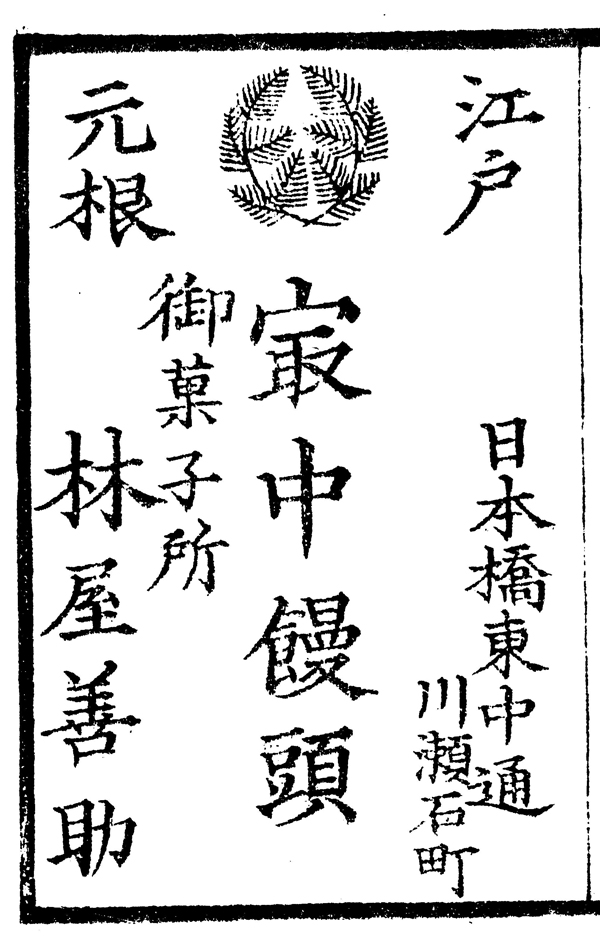 江戸
日本橋東中通
川瀬石町
㝡中饅頭
御菓子所
元根
林屋善助